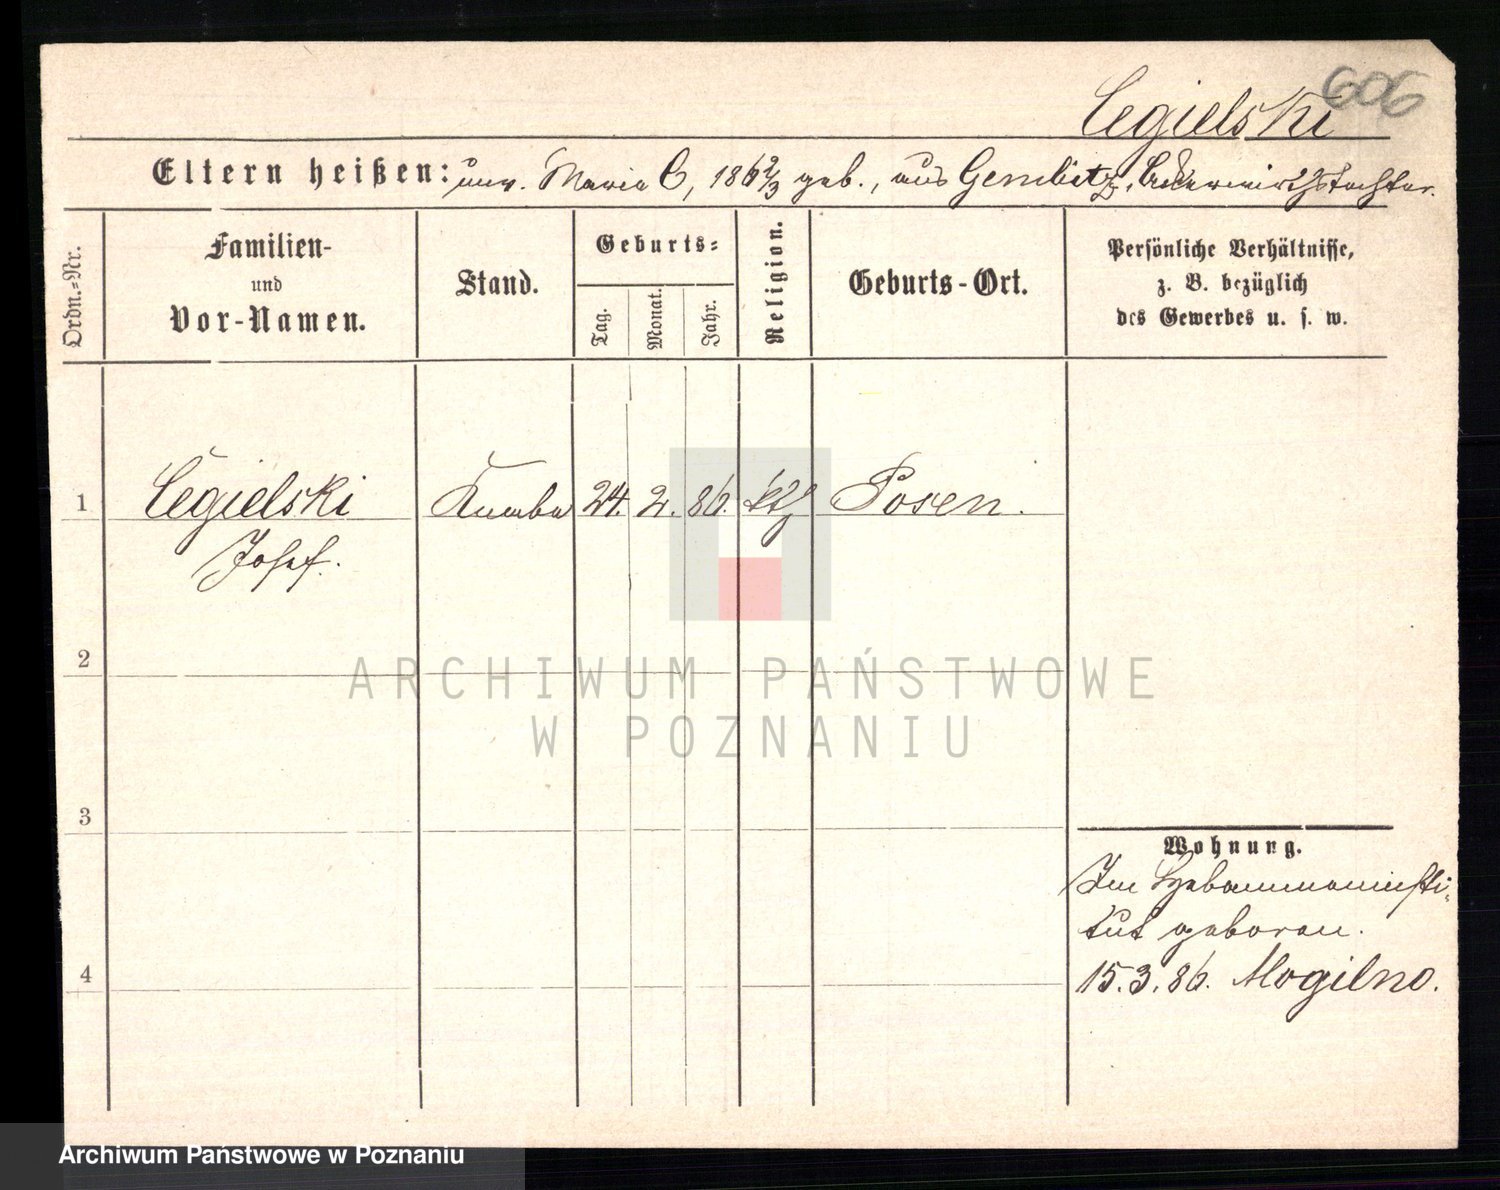 606
Cegielski
Eltern heißen: unv. Maria C, 1862/3 geb., aus Gembitz, Ackerwirthstochter.
Ordn.-Nr.
Familien-
und
Vor-Namen.
Stand.
Geburts-
Tag.
Monat.
Jahr.
Religion.
Geburts-Ort.
Persönliche Verhältnisse,
z. B. bezüglich
des Gewerbes u. s. w.
1 Cegielski Knabe 24. 2. 86. kth Posen.
Josef.
2
3
4
Wohnung.
Im Hebammeninsti-
tut geboren.
15.3.86. Mogilno.
ARCHIWUM PAŃSTWOWE
W POZNANIU
Archiwum Państwowe w Poznaniu